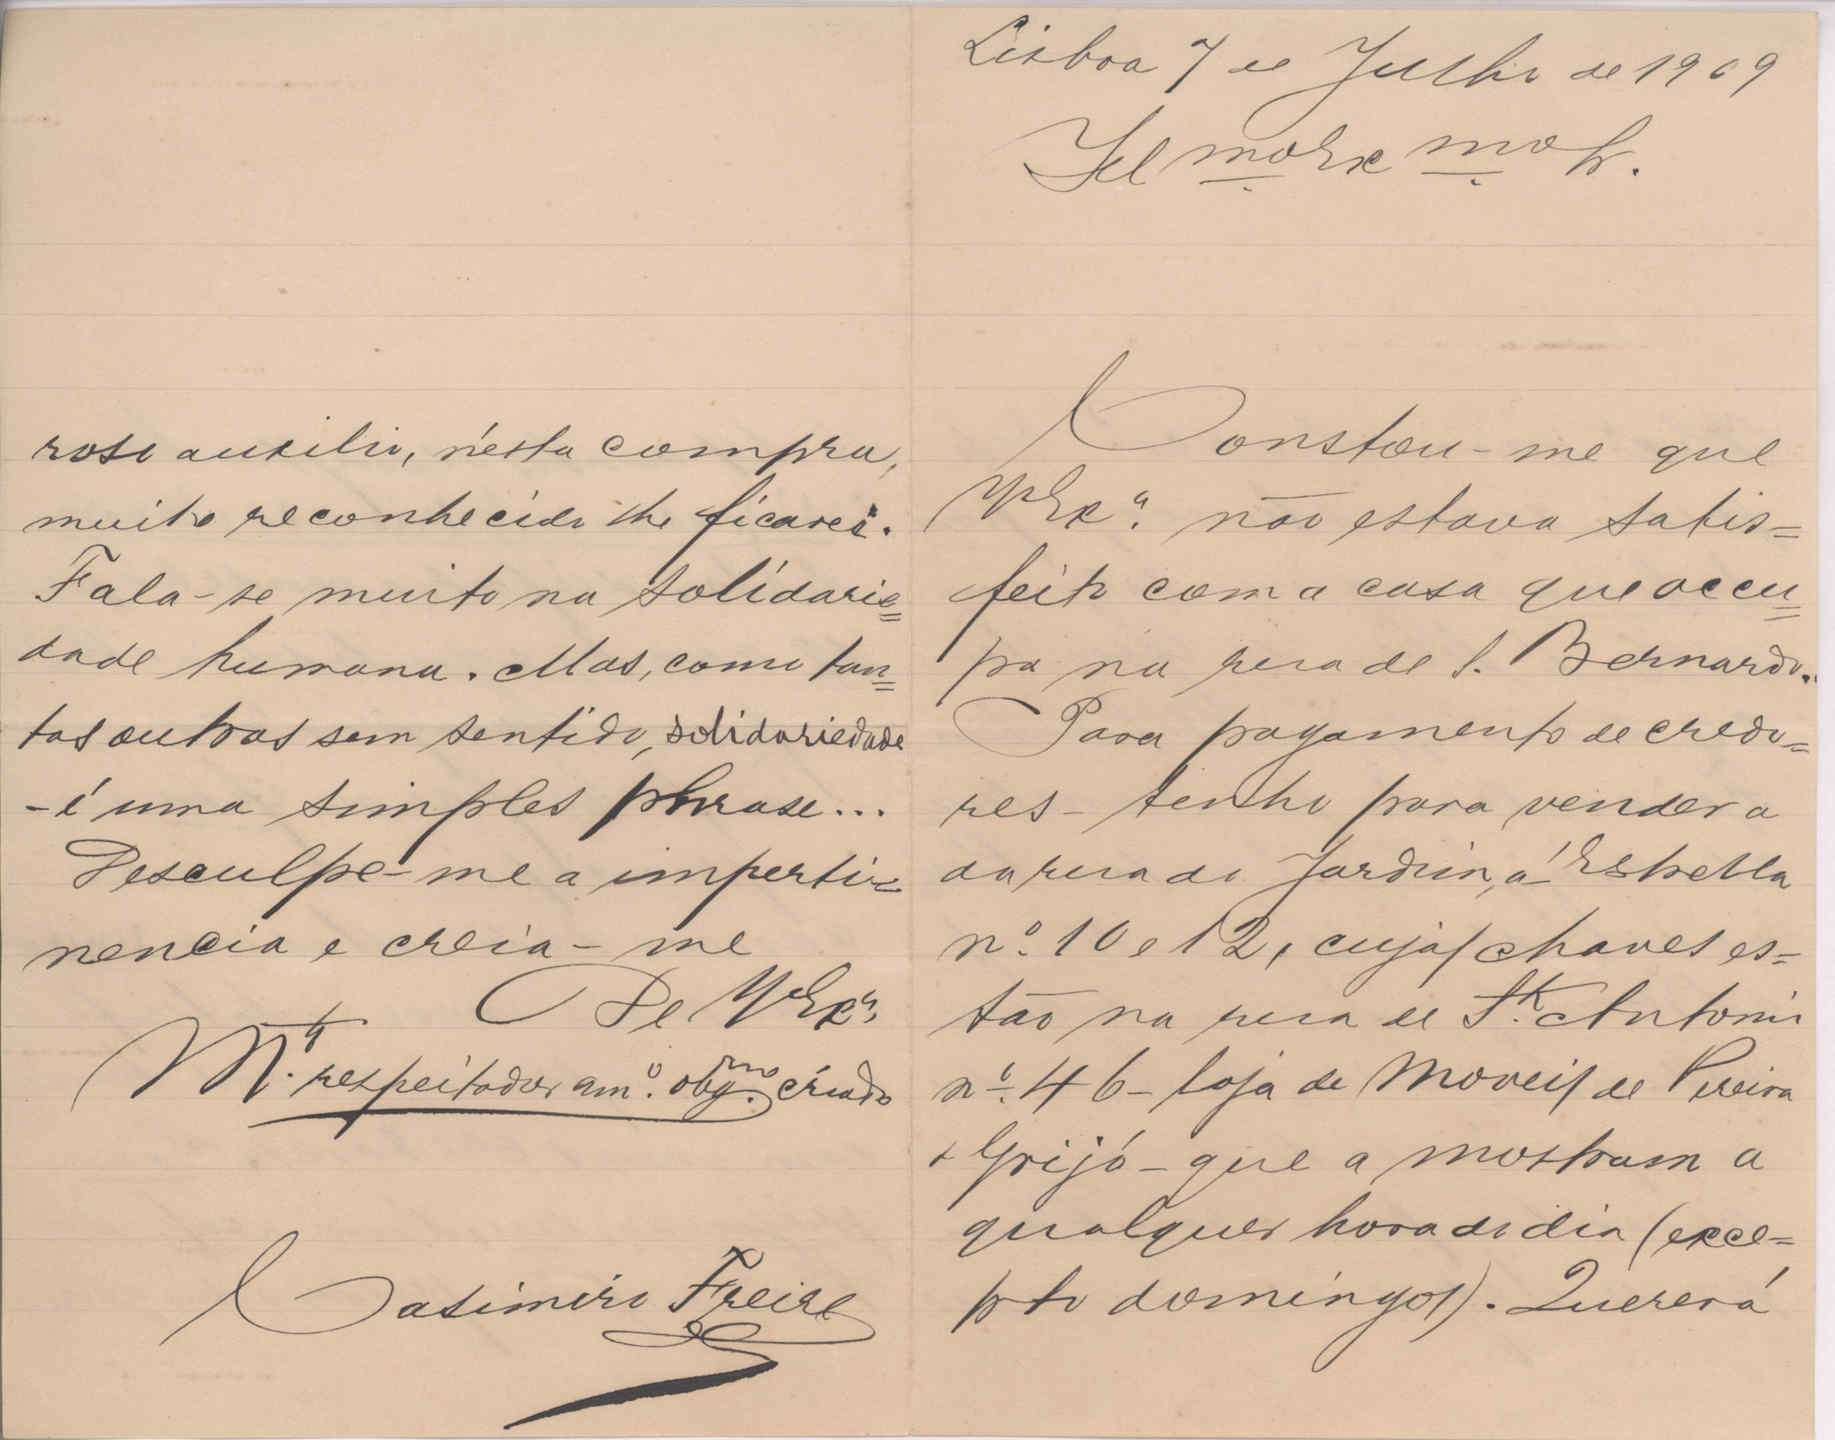 Lisboa 7 de Julho de 1909
Ill mo Ex mo Sr.
Constou-me que
V Exª. não estava satis=
feito com a casa que occu=
pa na rua de S. Bernardo.
Para pagamento de credo=
res - tenho para vender a
da rua do Jardim, á Estrella
nº. 10 e 12, cujas chaves es=
tão na rua de Stº. Antonio
nº. 46 - loja de moveis de Pereira
& Grijó - que a mostram a
qualquer hora do dia (exce=
pto domingos). Quererá
roso auxilio, n'esta compra,
muito reconhecido lhe ficarei.
Fala-se muito na solidarie=
dade humana. Mas, como tan=
tas outras sem sentido, solidariedade
- é uma simples phrase...
Desculpe-me a imperti=
nencia e creia-me
De V Exª.
Mtº. respeitador amº. obgmo. criado
Casimiro Freire